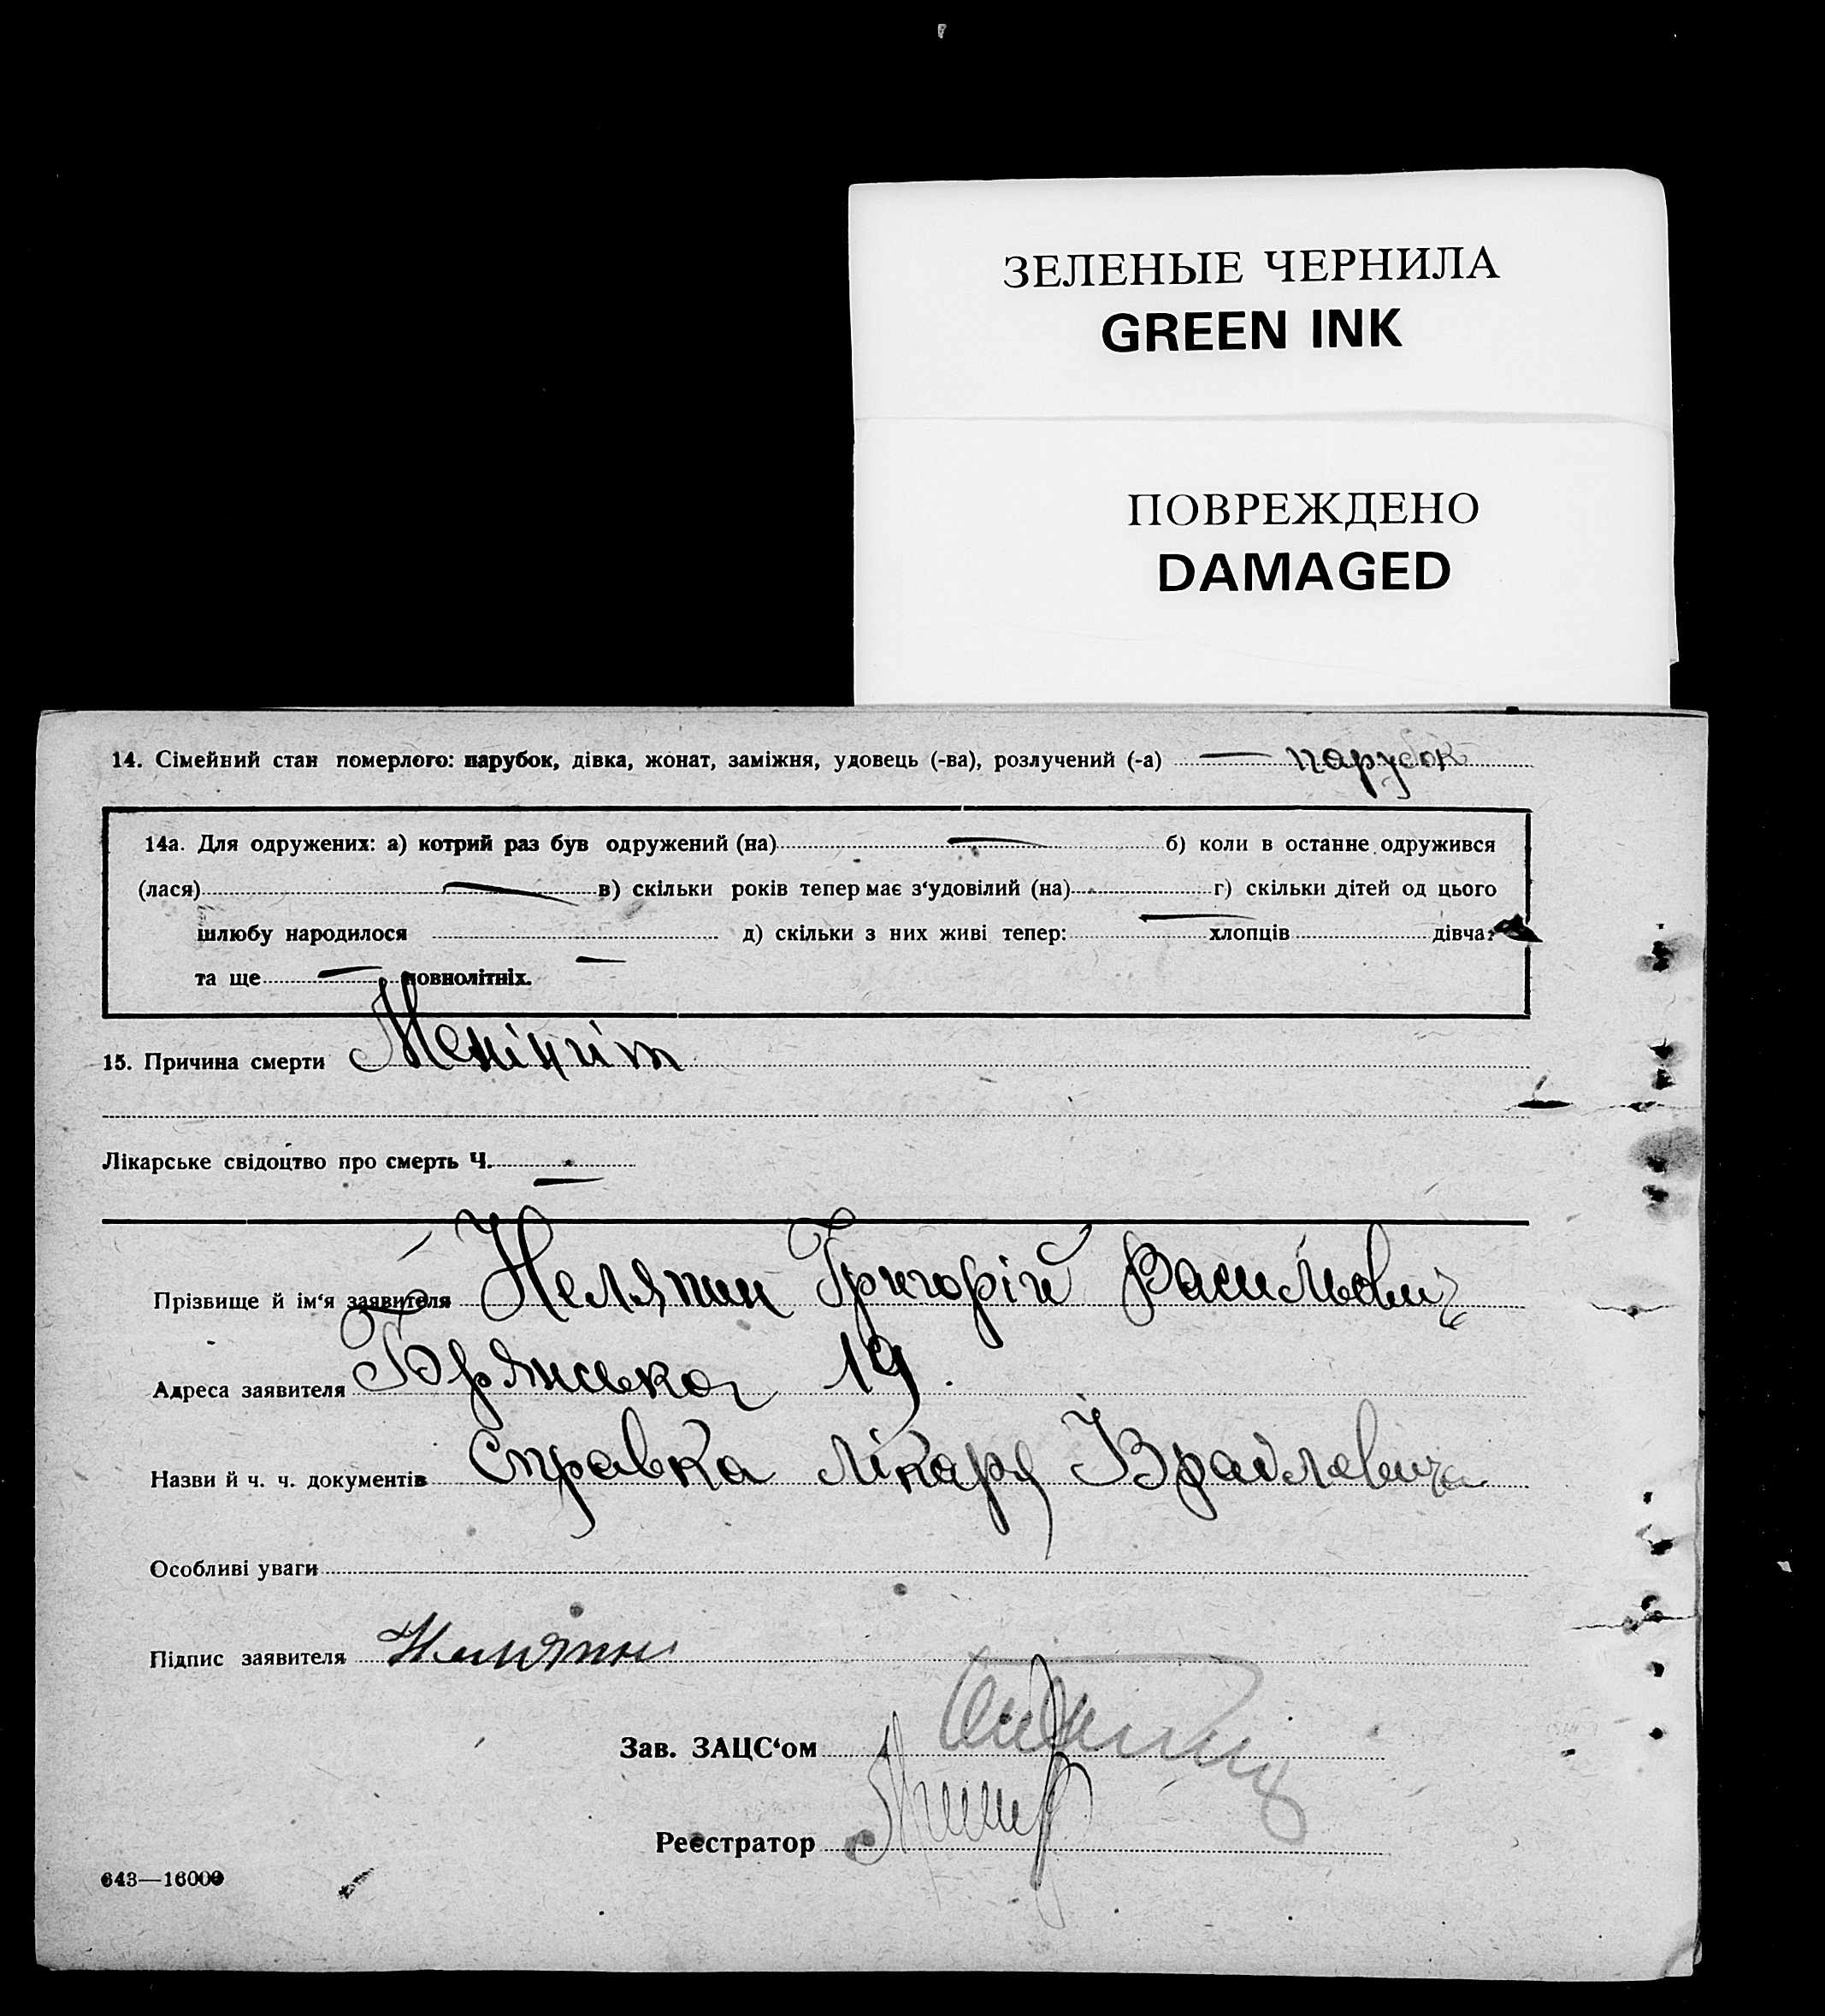 ЗЕЛЕНЫЕ ЧЕРНИЛА
GREEN INK
ПОВРЕЖДЕНО
DAMAGED
14. Сімейний стан померлого: парубок, дівка, жонат, заміжня, удовець (-ва), розлучений (-а) — парубок
14а. Для одружених: а) котрий раз був одружений (на) — б) коли в останне одружився
(лася) — в) скільки років тепер має з‘удовілий (на) г) скільки дітей од цього
шлюбу народилося д) скільки з них живі тепер: — хлопців дівчат
та ще — повнолітніх.
15. Причина смерти Менінгіт
Лікарське свідоцтво про смерть Ч. —
Прізвище й ім‘я заявителя Неляпин Григорій Васильович
Адреса заявителя Брянська 19.
Назви й ч. ч. документів Справка лікаря
Особливі уваги
Підпис заявителя Неляпин
Зав. ЗАЦС‘ом
Реєстратор
643—16000